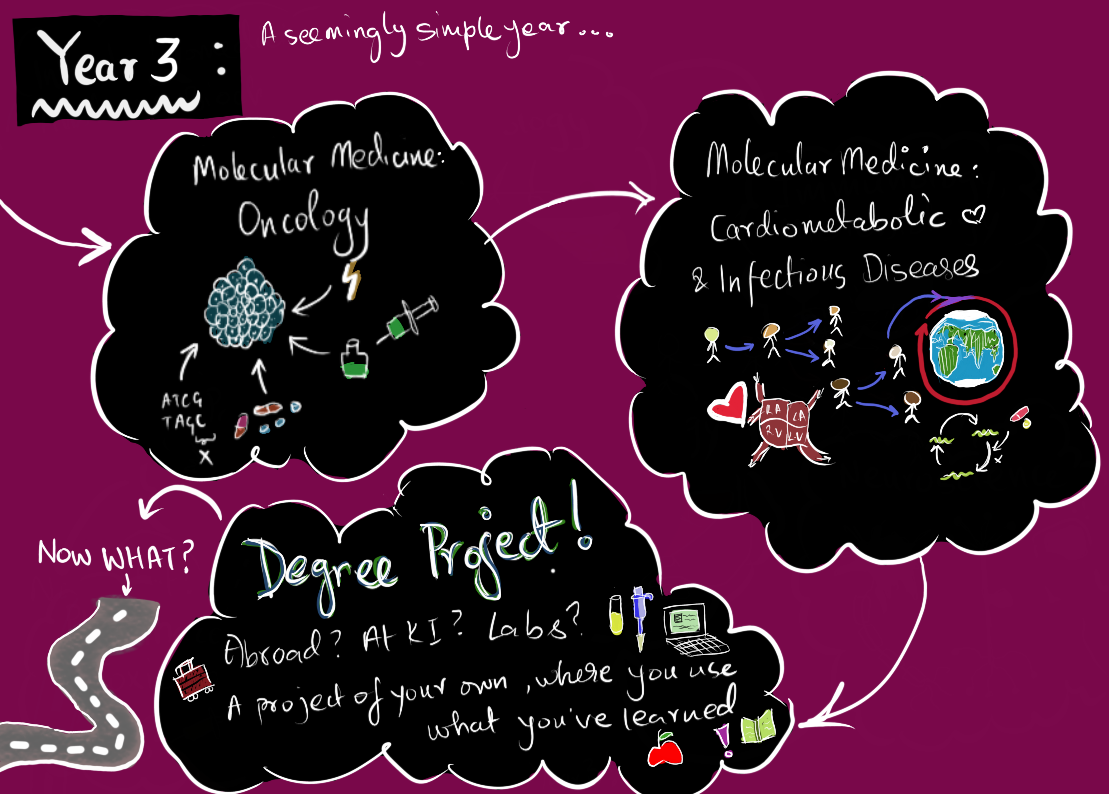 Year 3 :
A seemingly simple year...
Molecular Medicine:
Oncology
ATCG
TAGC
x
Molecular Medicine:
Cardiometabolic ♡
& Infectious Diseases
RA LA
RV LV
x
Degree Project!
Abroad? At KI? Labs?
A project of your own, where you use
what you've learned
NOW WHAT?